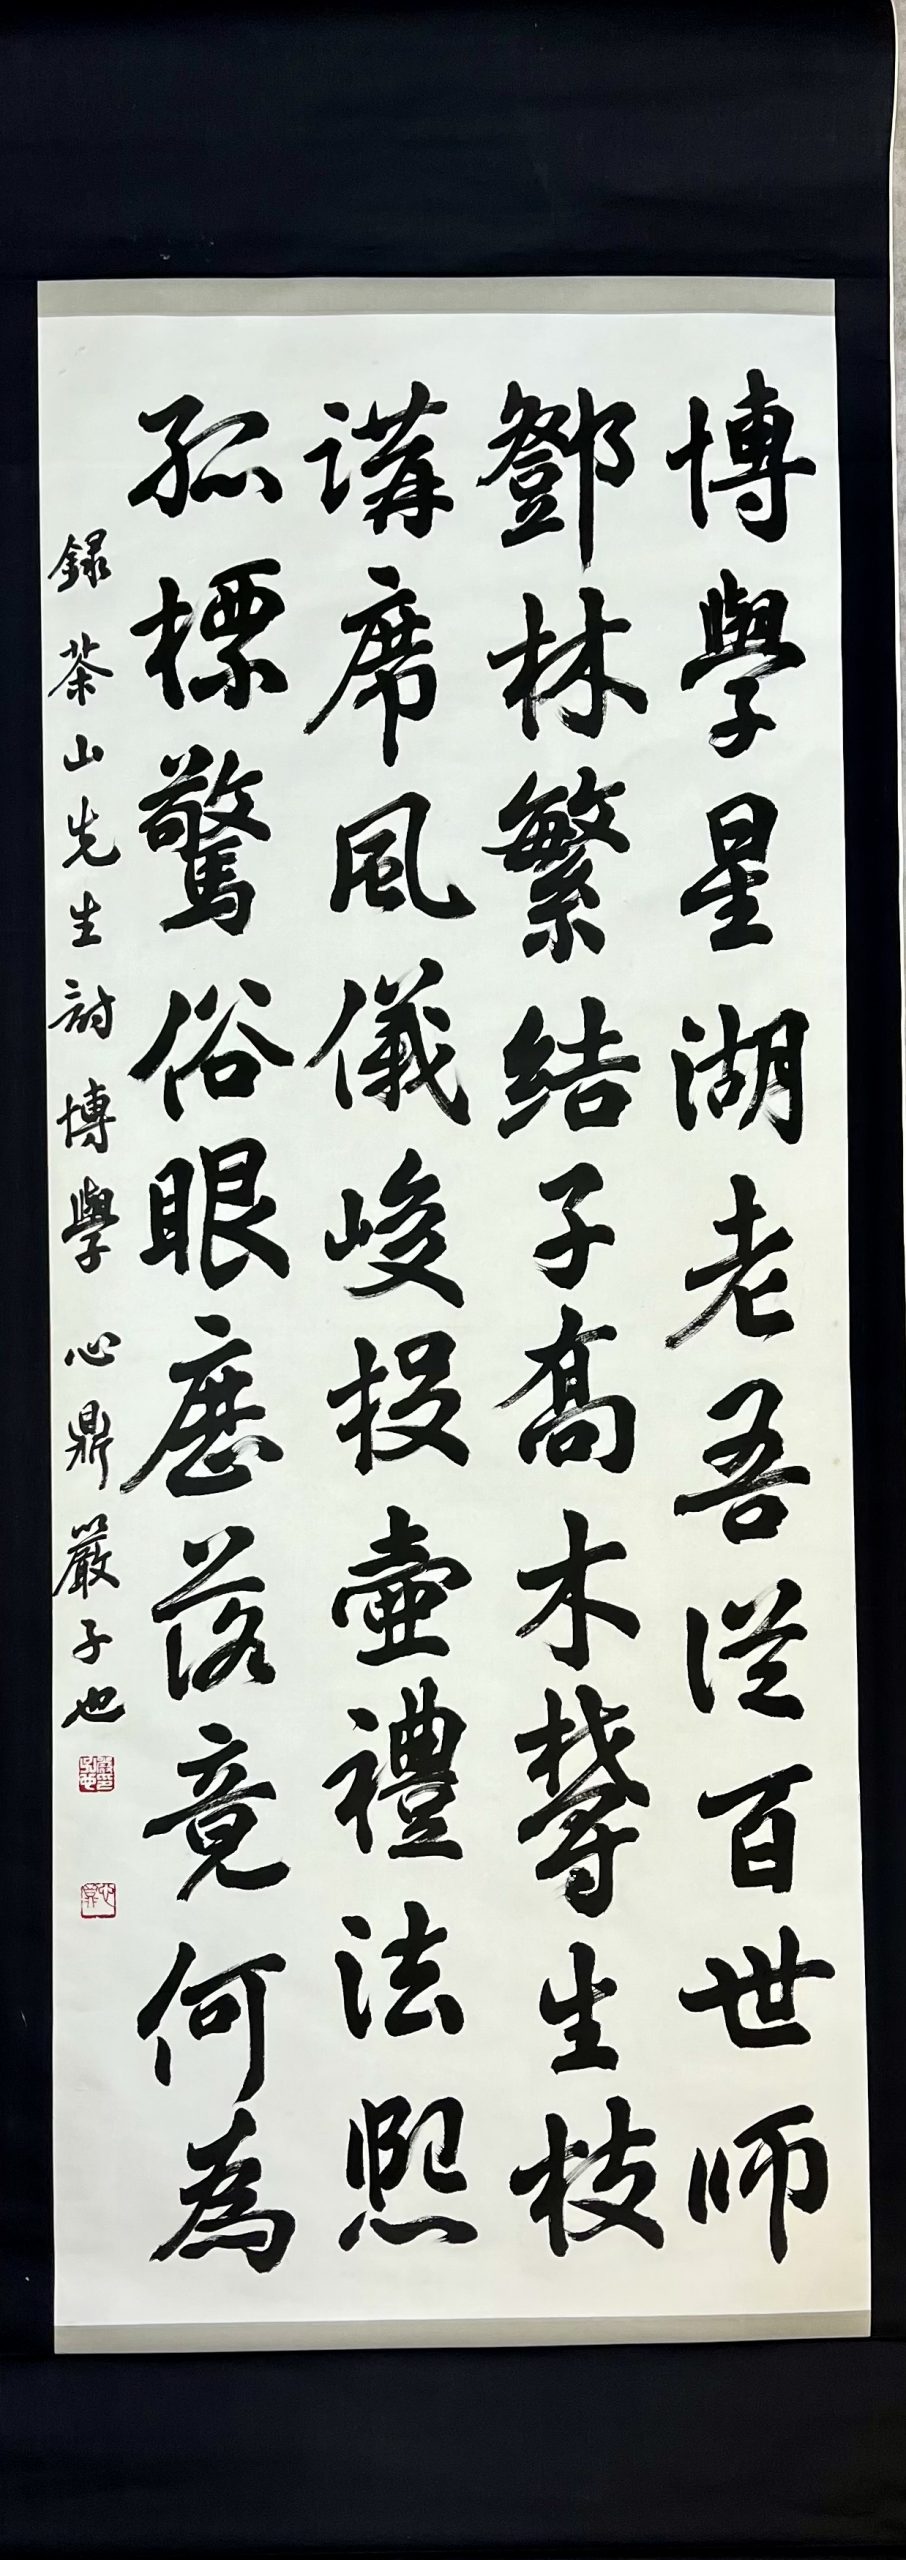 博學星湖老吾從百世師
鄧林繁結子喬木欝生枝
講席風儀峻投壺禮法熙
孤標驚俗眼歷落竟何為
録茶山先生詩博學 心鼎嚴子也